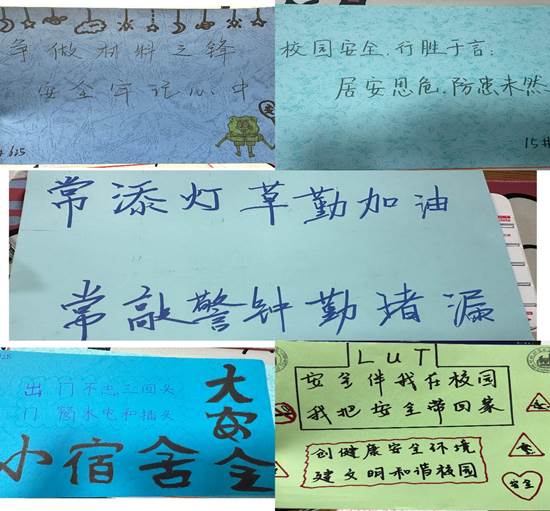 争做材料之锋
安全牢记心中
# 625
校园安全，行胜于言；
居安思危，防患未然
15#
常添灯草勤加油
常敲警钟勤堵漏
出门不忘三回头
门窗水电和插头
小宿舍
大安全
LUT
安全伴我在校园
我把安全带回家
创健康安全环境
建文明和谐校园
安全